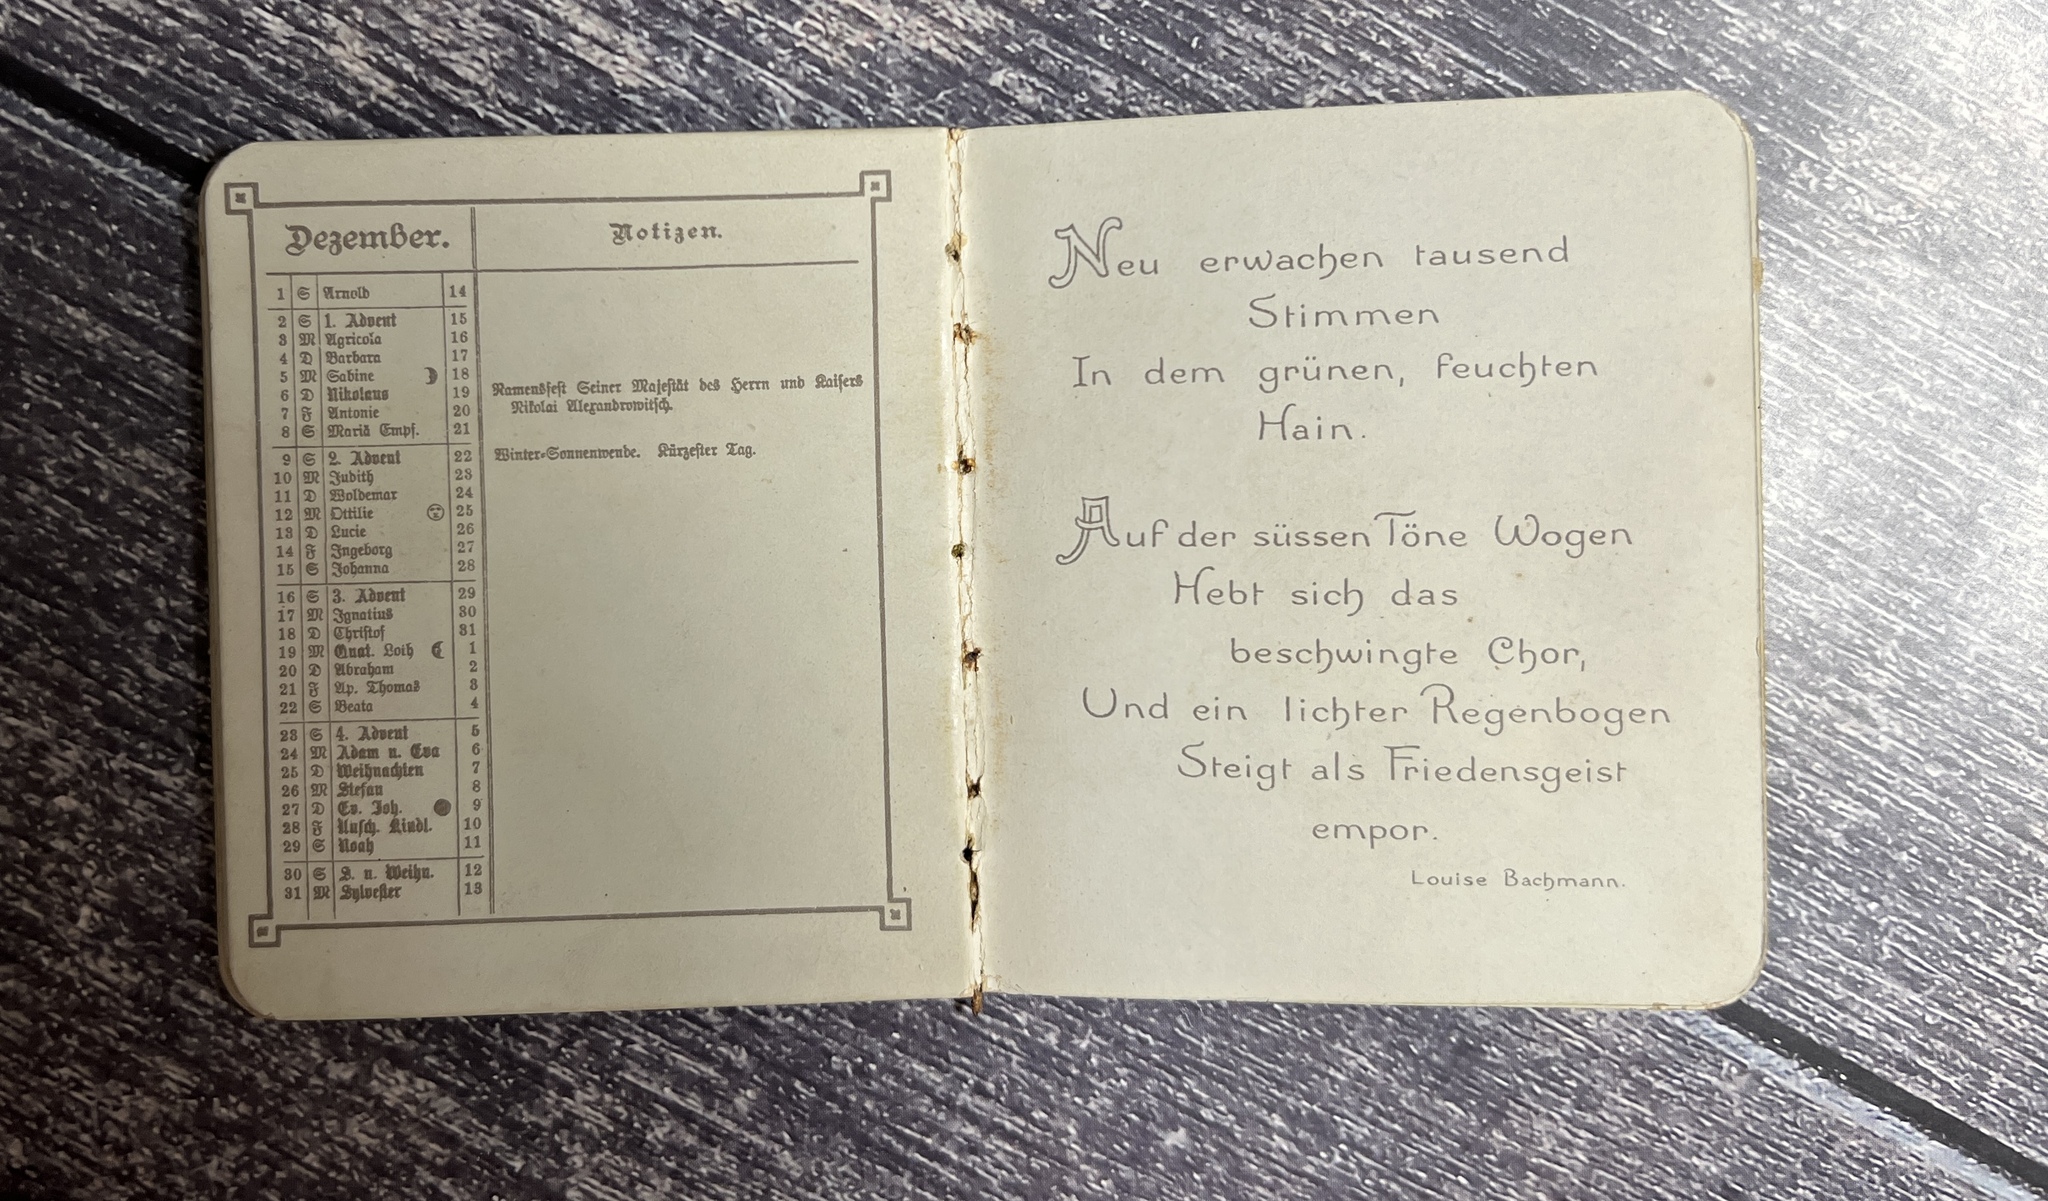 Dezember.
Notizen.
1 S Arnold 14
2 S 1. Advent 15
3 M Agricola 16
4 D Barbara 17
5 M Sabine 18
6 D Nikolaus 19
Namensfest Seiner Majestät des Herrn und Kaisers
7 F Antonie 20
Nikolai Alexandrowitsch.
8 S Mariä Empf. 21
9 S 2. Advent 22
Winter-Sonnenwende. Kürzester Tag.
10 M Judith 23
11 D Woldemar 24
12 M Ottilie 25
13 D Lucie 26
14 F Ingeborg 27
15 S Johanna 28
16 S 3. Advent 29
17 M Ignatius 30
18 D Christof 31
19 M Quat. Loth 1
20 D Abraham 2
21 F Ap. Thomas 3
22 S Beata 4
23 S 4. Advent 5
24 M Adam u. Eva 6
25 D Weihnachten 7
26 M Stefan 8
27 D Ev. Joh. 9
28 F Unsch. Kindl. 10
29 S Noah 11
30 S S. n. Weihn. 12
31 M Sylvester 13
Neu erwachen tausend
Stimmen
In dem grünen, feuchten
Hain.
Auf der süssen Töne Wogen
Hebt sich das
beschwingte Chor,
Und ein lichter Regenbogen
Steigt als Friedensgeist
empor.
Louise Bachmann.